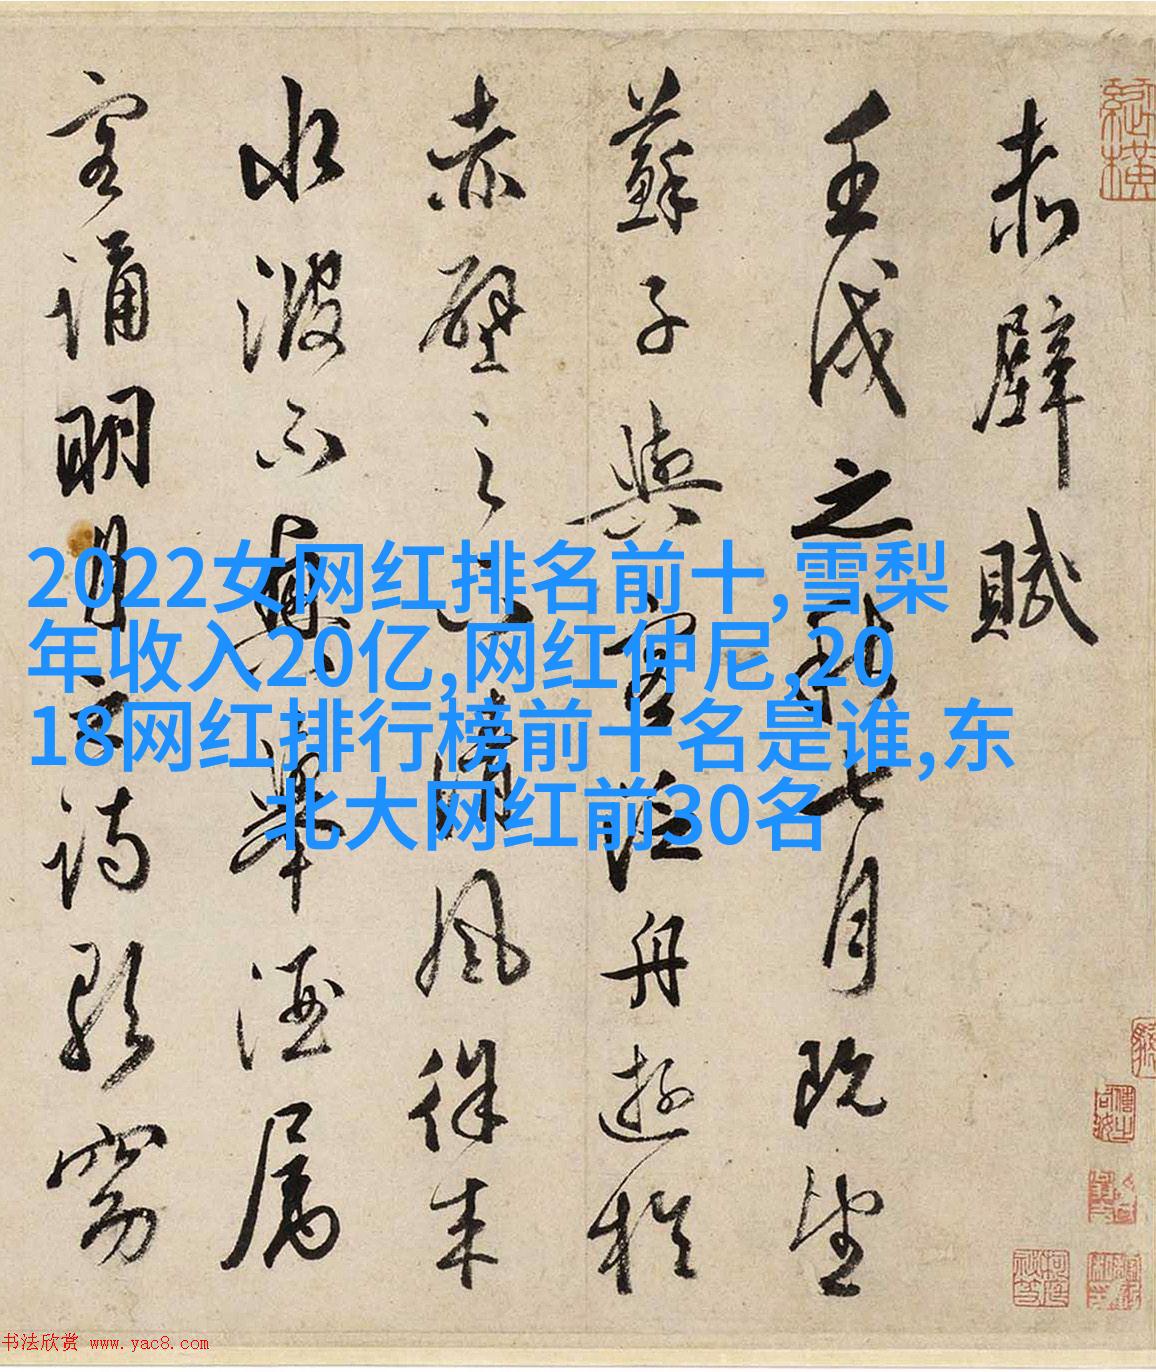 赤壁賦
壬戌之秋七月既望
蘇子與客泛舟遊於
赤壁之下清風徐来
水波不興舉酒属
客誦明月之詩歌窈
2022女网红排名前十,雪梨
年收入20亿,网红仲尼,20
18网红排行榜前十名是谁,东
北大网红前30名
书法欣赏 www.yac8.com